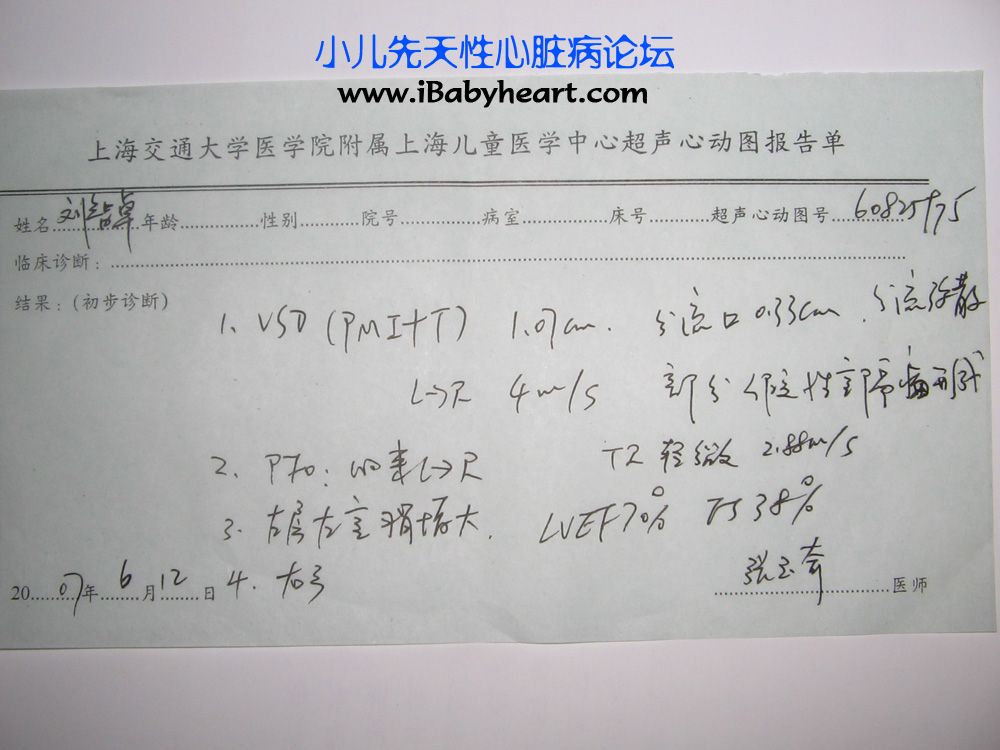 小儿先天性心脏病论坛
www.iBabyheart.com
上海交通大学医学院附属上海儿童医学中心超声心动图报告单
姓名 刘喆卓 年龄 性别 院号 病室 床号 超声心动图号
临床诊断:
结果:(初步诊断)
1. VSD (PMI+T) 1.07cm. 分流口 0.33cm. 分流弥散
L→R 4m/s 部分假性室隔瘤形成
2. PFO: 细束L→R TR 轻微 2.88m/s
3. 左房左室稍增大. LVEF70% FS 38%
2007年6月12日 4. 左弓
医师